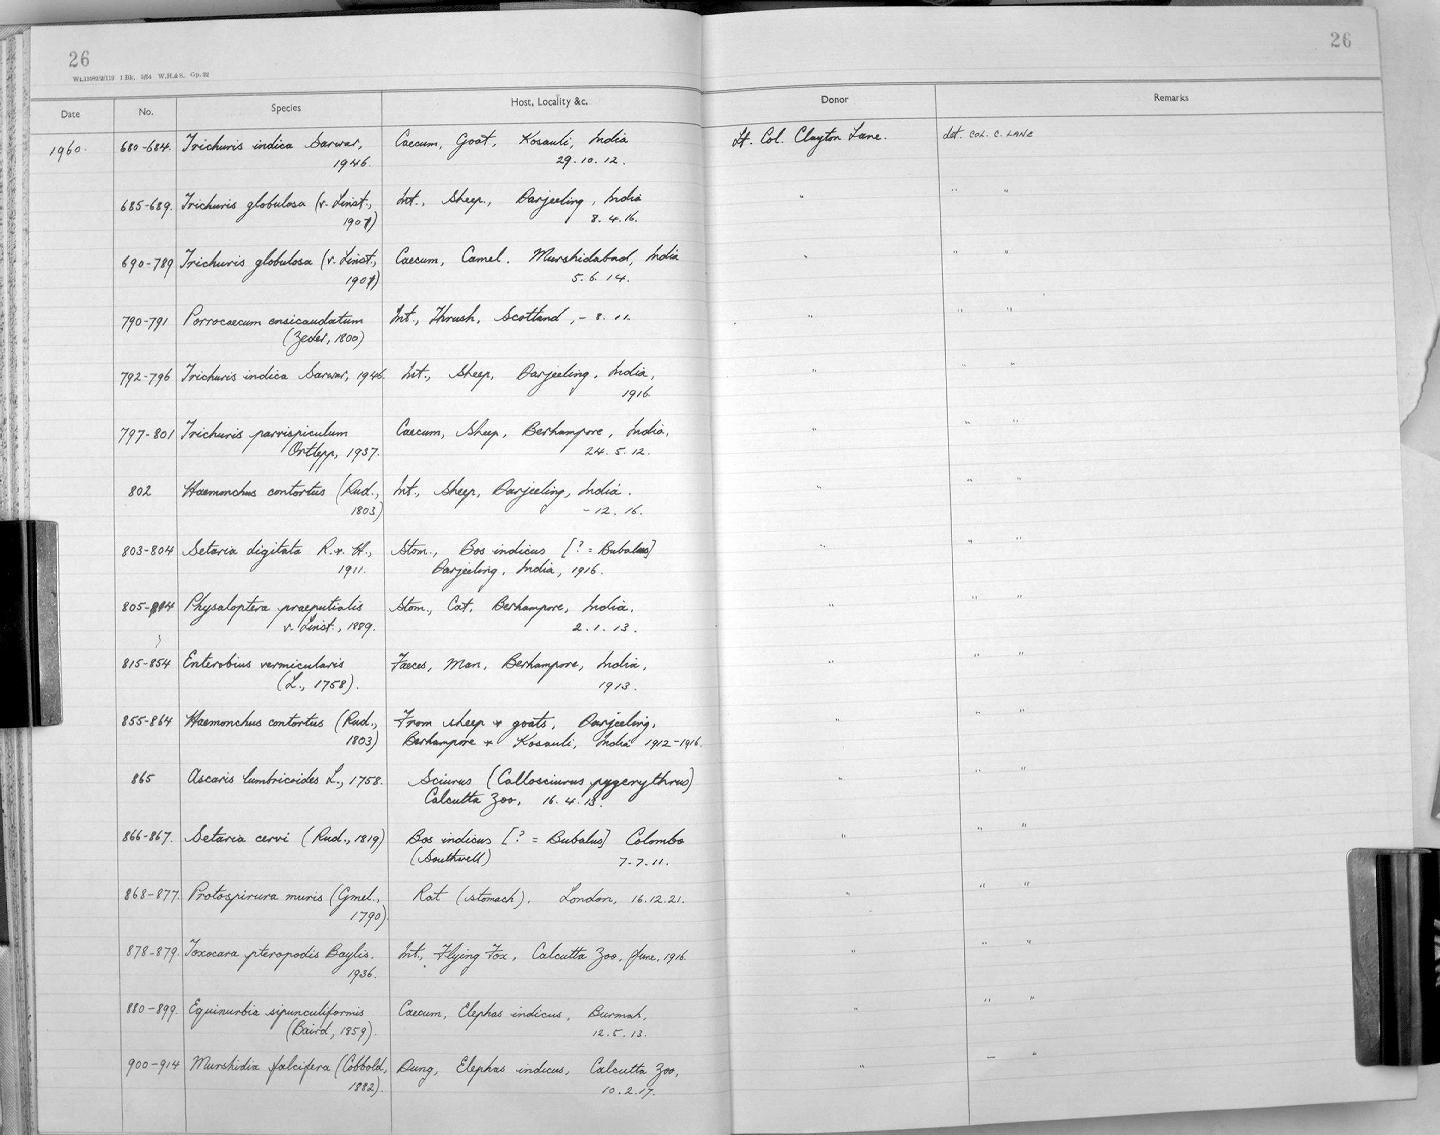 26
26
Wt.15892/2/119 1 Bk. 5/54 W.H.&S. Gp. 22
Date No. Species Host, Locality &c. Donor Remarks
1960. 680-684. Trichuris indica Sarwar, Caecum, Goat, Kosauli, India Lt. Col. Clayton Lane. det. COL. C. LANE
1946. 29.10.12.
685-689. Trichuris globulosa (v. Linst., Int., Sheep, Darjeeling, India " " "
1901) 8.4.16.
690-789 Trichuris globulosa (v. Linst., Caecum, Camel. Murshidabad, India " " "
1901) 5.6.14.
790-791 Porrocaecum ensicaudatum Int., Thrush, Scotland, - 8. 11. " " "
(Zeder, 1800)
792-796 Trichuris indica Sarwar, 1946. Int., Sheep, Darjeeling, India, " " "
1916.
797-801 Trichuris parvispiculum Caecum, Sheep, Berhampore, India, " " "
Ortlepp, 1937. 24.5.12.
802 Haemonchus contortus (Rud., Int., Sheep, Darjeeling, India. " " "
1803) -12.16.
803-804 Setaria digitata R. & H., Stom., Bos indicus [? = Bubalus] " " "
1911. Darjeeling, India, 1916.
805-814 Physaloptera praeputialis Stom., Cat, Berhampore, India, " " "
v. Linst., 1889. 2.1.13.
815-854 Enterobius vermicularis Faeces, Man, Berhampore, India, " " "
(L., 1758). 1913.
855-864 Haemonchus contortus (Rud., From sheep & goats, Darjeeling, " " "
1803) Berhampore & Kosauli, India 1912-1916.
865 Ascaris lumbricoides L., 1758. Sciurus (Callosciurus pygerythrus) " " "
Calcutta Zoo, 16.4.13.
866-867. Setaria cervi (Rud., 1819) Bos indicus [? = Bubalus] Colombo " " "
(Southwell) 7-7.11.
868-877. Protospirura muris (Gmel., Rat (stomach). London, 16.12.21. " " "
1790)
878-879. Toxocara pteropodis Baylis. Int., Flying Fox, Calcutta Zoo, June, 1916. " " "
1936.
880-899. Equinurbia sipunculiformis Caecum, Elephas indicus, Burmah, " " "
(Baird, 1859). 12.5.13.
900-914 Murshidia falcifera (Cobbold, Dung, Elephas indicus, Calcutta Zoo, " — "
1882). 10.2.17.